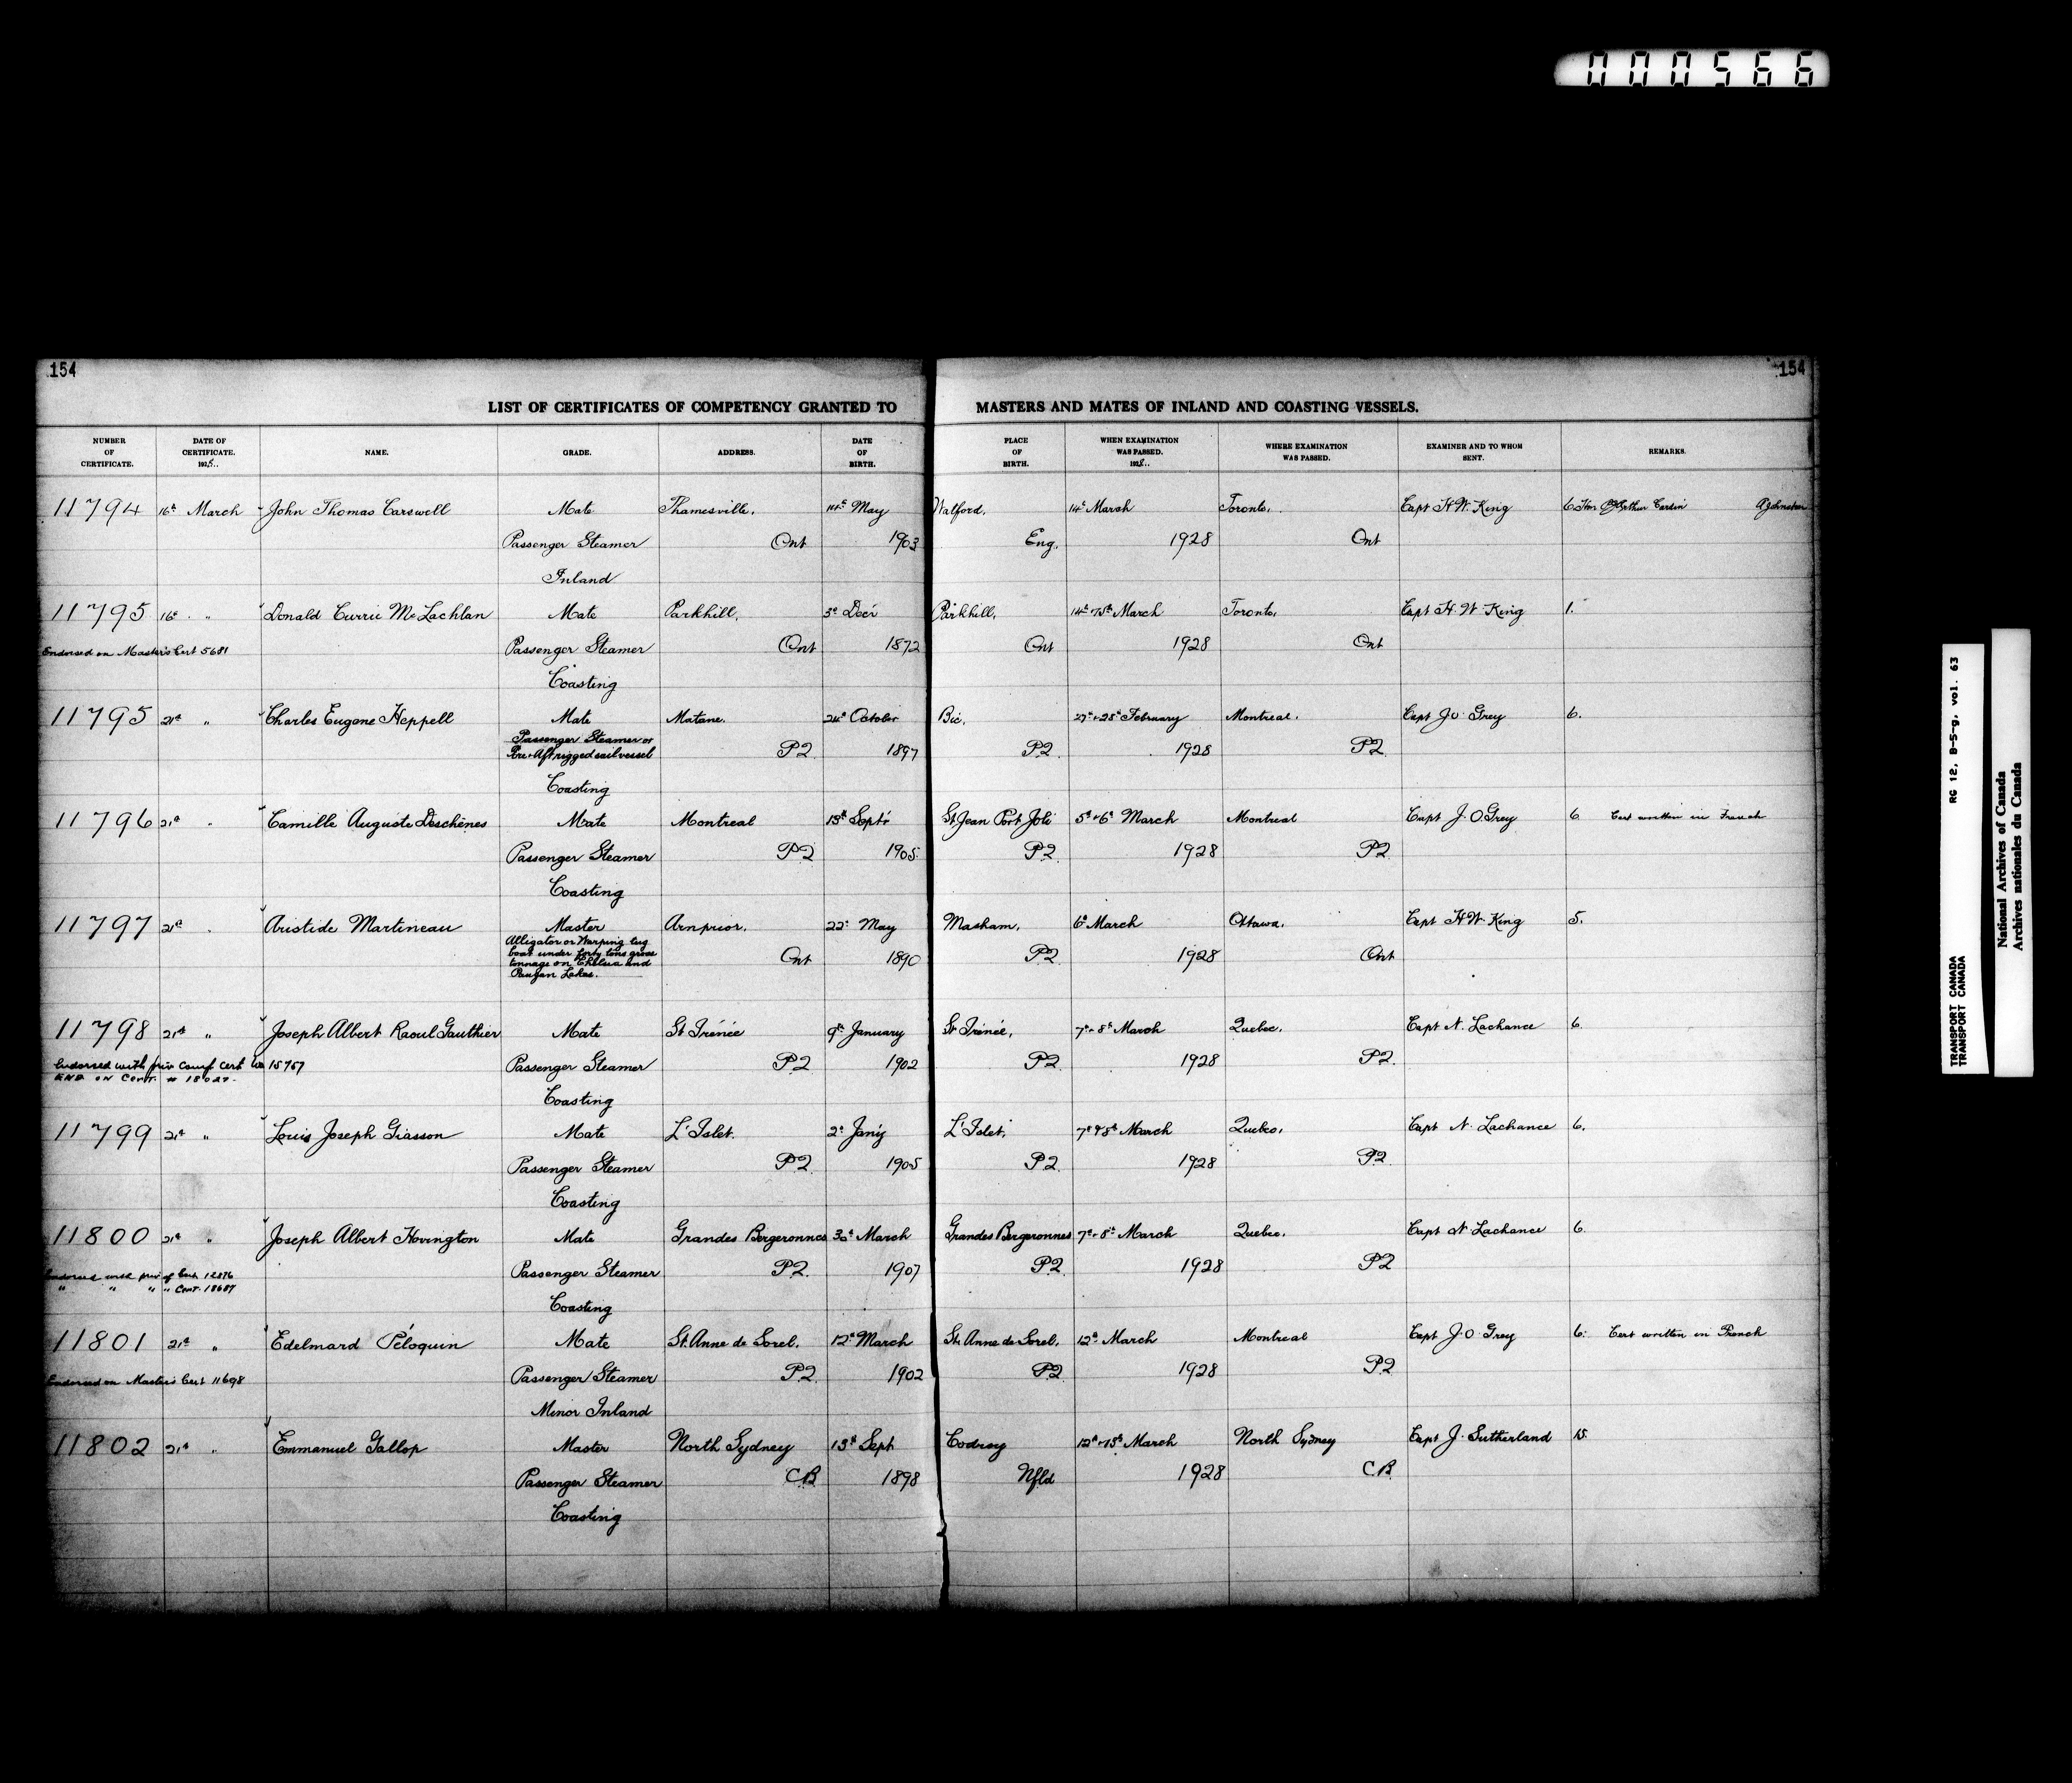 000566
154
154
LIST OF CERTIFICATES OF COMPETENCY GRANTED TO MASTERS AND MATES OF INLAND AND COASTING VESSELS.
NUMBER OF CERTIFICATE. DATE OF CERTIFICATE. 1928. NAME. GRADE. ADDRESS. DATE OF BIRTH. PLACE OF BIRTH. WHEN EXAMINATION WAS PASSED. 1928. WHERE EXAMINATION WAS PASSED. EXAMINER AND TO WHOM SENT. REMARKS.
11794 16th March John Thomas Carswell Mate Thamesville, 14th May Walford, 14th March Toronto, Capt H.W. King 6 Hon Arthur Cardin A Johnston
Passenger Steamer Ont 1903 Eng. 1928 Ont
Inland
11795 16th " Donald Currie McLachlan Mate Parkhill, 3rd Decr Parkhill, 14th & 15th March Toronto, Capt H.W. King 1.
Endorsed on Master's Cert 5681 Passenger Steamer Ont 1872 Ont 1928 Ont
Coasting
11795 21st " Charles Eugene Heppell Mate Matane. 24th October Bic, 27th & 28th February Montreal. Capt J.O. Grey 6.
Passenger Steamer or
Fore & Aft rigged sail vessel P2 1897 P2 1928 P2
Coasting
11796 21st " Camille Auguste Deschênes Mate Montreal 13th Septr St Jean Port Joli 5th & 6th March Montreal Capt J.O. Grey 6 Cert written in French
Passenger Steamer P2 1905 P2 1928 P2
Coasting
11797 21st " Aristide Martineau Master Arnprior, 22nd May Masham, 6th March Ottawa, Capt H.W. King 5.
Alligator or Warping tug
boat under forty tons gross
tonnage on Chelsea and
Paugan Lakes. Ont 1890 P2 1928 Ont
11798 21st " Joseph Albert Raoul Gauthier Mate St Irénée 9th January St Irénée, 7th & 8th March Quebec, Capt N. Lachance 6.
Endorsed with priv Compt Cert No 15757 Passenger Steamer P2 1902 P2 1928 P2
END ON CERT. # 18027. Coasting
11799 21st " Louis Joseph Giasson Mate L'Islet. 2nd Jan'y L'Islet, 7th & 8th March Quebec, Capt N. Lachance 6.
Passenger Steamer P2 1905 P2 1928 P2
Coasting
11800 21st " Joseph Albert Hovington Mate Grandes Bergeronnes 30th March Grandes Bergeronnes 7th & 8th March Quebec, Capt N. Lachance 6.
Endorsed with priv of Cert 12876 Passenger Steamer P2 1907 P2 1928 P2
" " " " Cert. 18687 Coasting
11801 21st " Edelmard Péloquin Mate St. Anne de Sorel. 12th March St. Anne de Sorel. 12th March Montreal Capt J.O. Grey 6. Cert written in French
Endorsed on Master's Cert 11698 Passenger Steamer P2 1902 P2 1928 P2
Minor Inland
11802 21st " Emmanuel Gallop Master North Sydney 13th Sept Codroy 12th & 15th March North Sydney Capt J. Sutherland 15.
Passenger Steamer C.B 1898 Nfld 1928 C.B.
Coasting
TRANSPORT CANADA RG 12, B-5-g, vol. 63
TRANSPORT CANADA
National Archives of Canada
Archives nationales du Canada